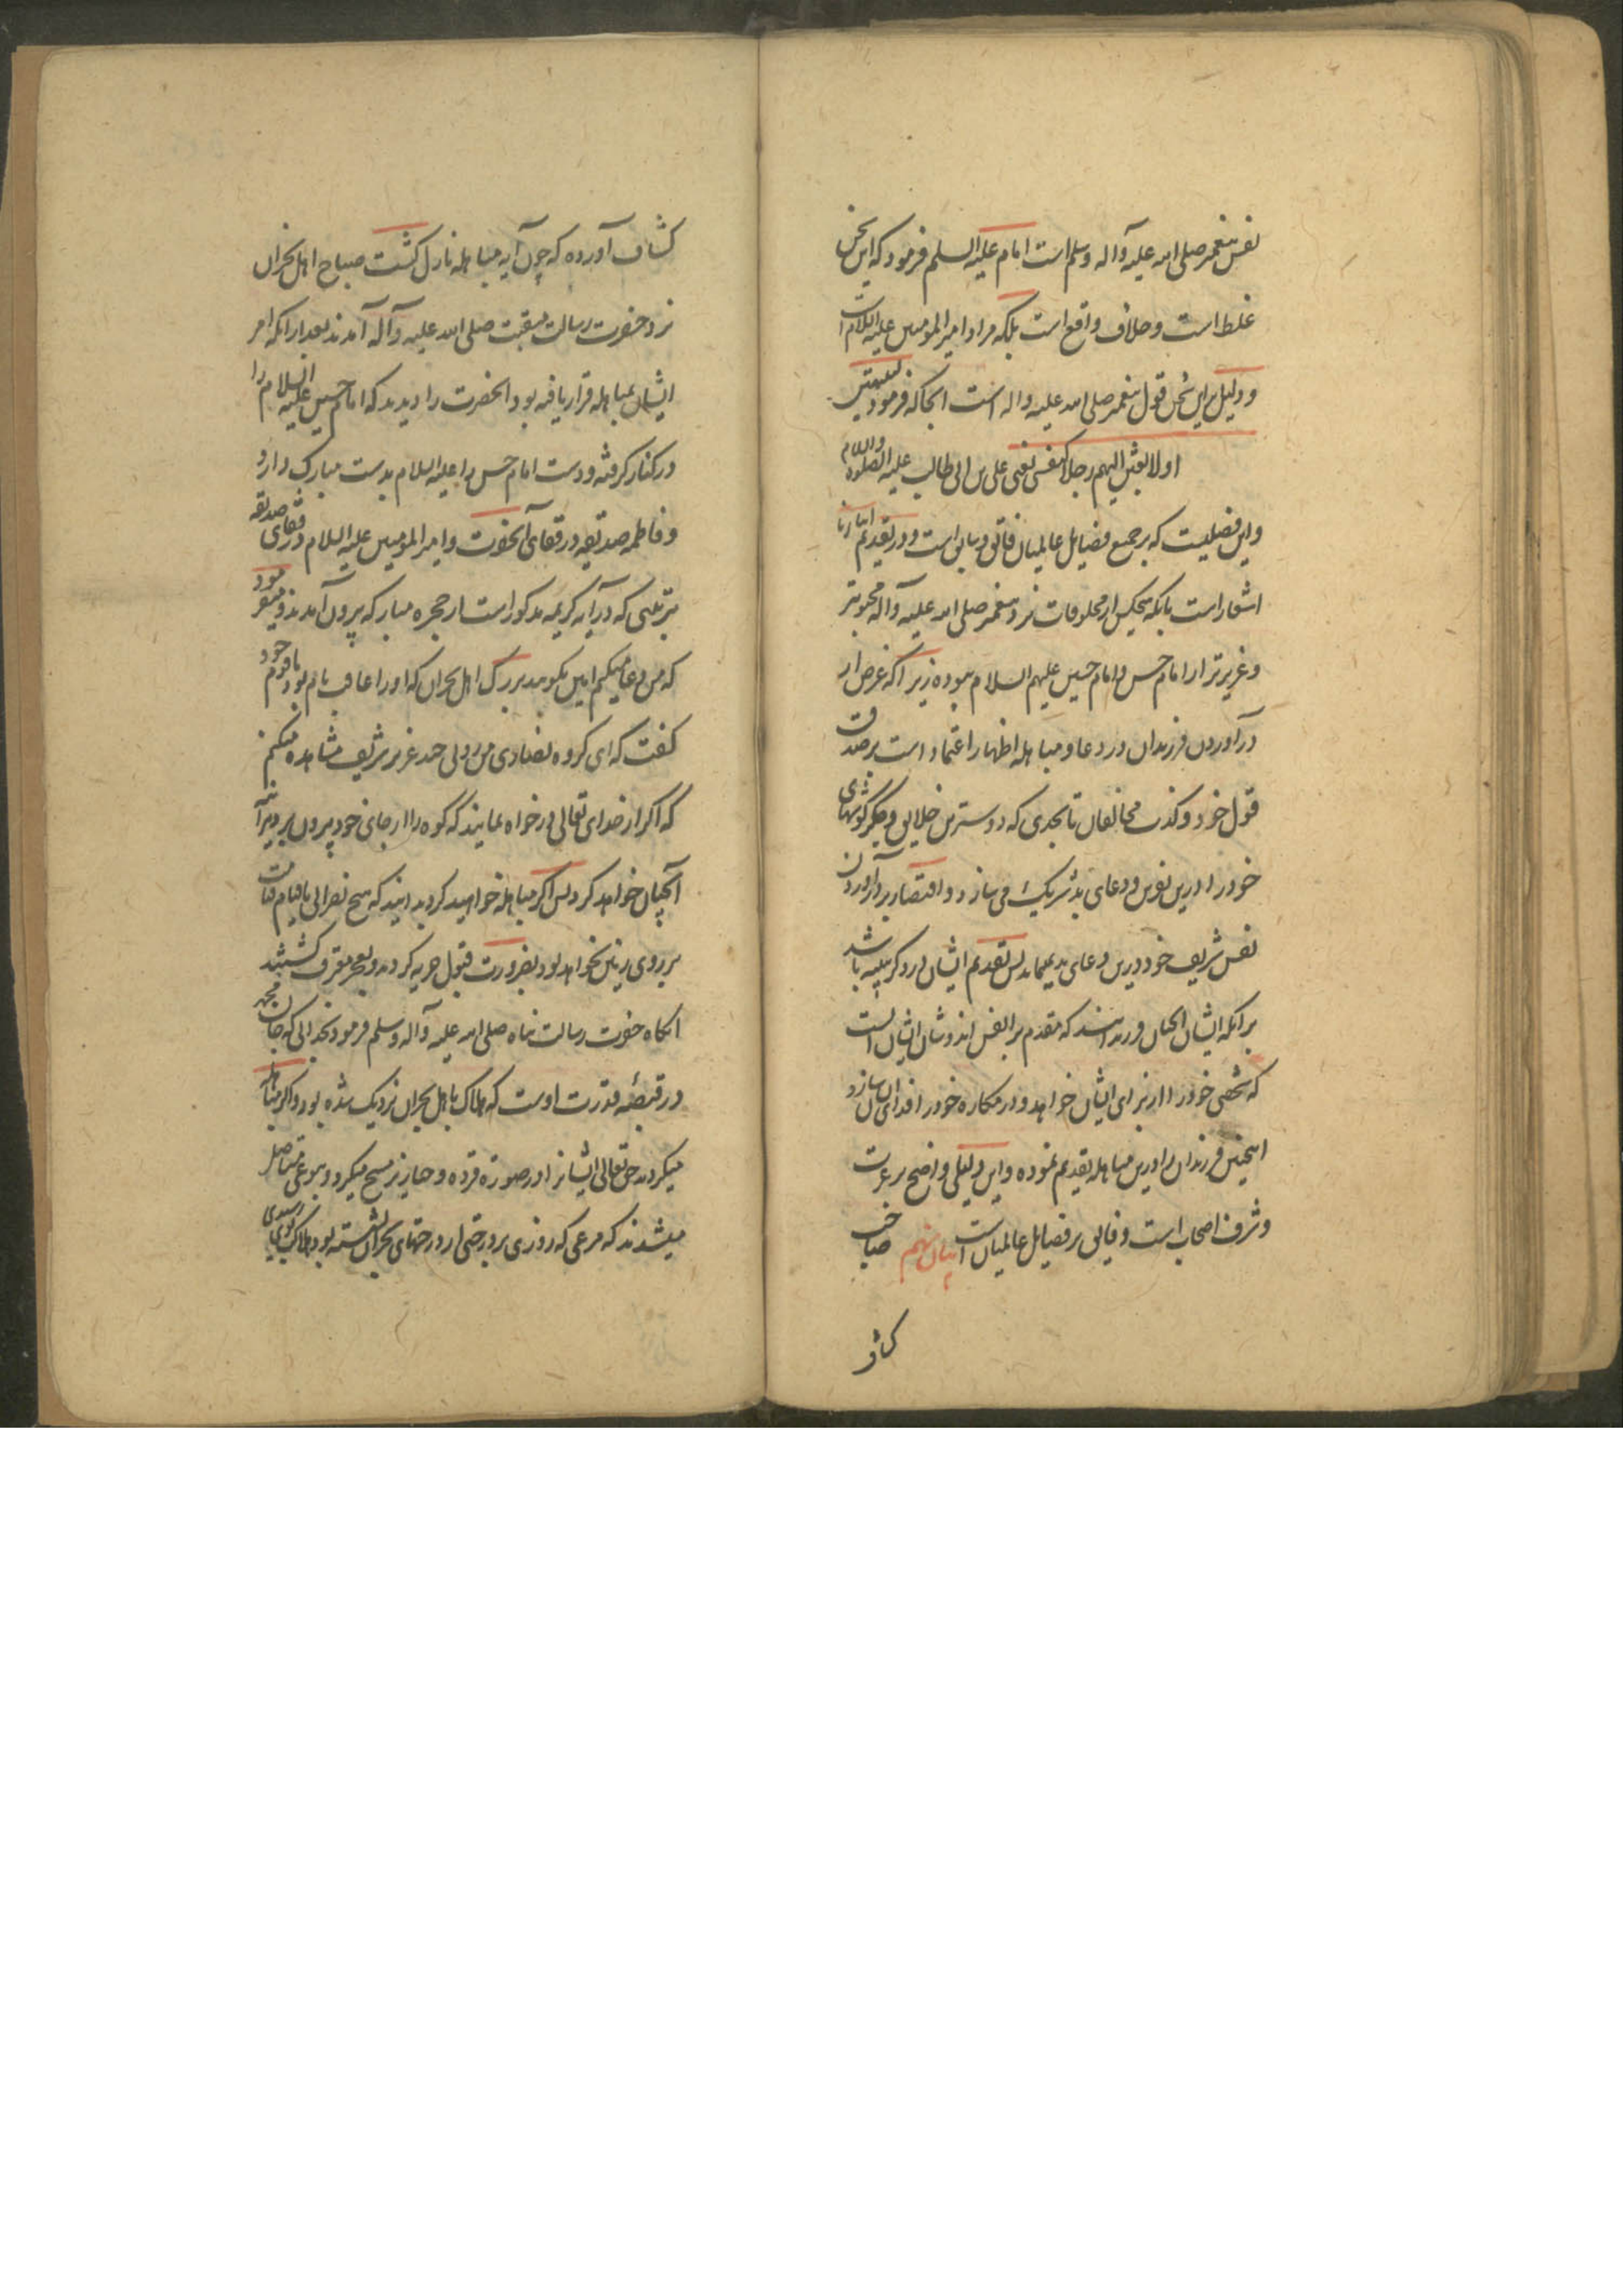 نفس پیغمبر صلی الله علیه وآله وسلم است امام علیه السلم فرمود که این سخن
غلط است وخلاف واقع است بلکه مراد امیر المومنین علیه السلام است
ودلیل براین سخن قول پیغمبر صلی الله علیه واله است انجا که فرمود لینتهین
اولا بعثن الیهم رجلا کنفسی یعنی علی بن ابی طالب علیه الصلوة والسلام
واین فضلیت که بر جمیع فضایل عالمیان فائق است ودر تقدیم
اشعار است بانکه هیچکس از مخلوقات نزد پیغمبر صلی الله علیه وآله محبوبتر
وعزیزتر از امام حسن وامام حسین علیهم السلام نبوده زیرا که غرض از
درآوردن فرزندان در دعا ومباهله اظهار اعتماد است بر صدق
قول خود وکذب مخالفان تا بحدی که دوسترین خلایق وجگر گوشهای
خود را درین نفرین ودعای بد شریک می سازد واقتصار بر درآوردن
نفس شریف خود درین دعای بد نمینماید پس تقدیم ایشان در ذکر باشد
برآنکه ایشان انچنان فرزندانند که مقدم بر انفس اند وشان ایشان انست
که شخص خود را از برای ایشان خواهد ودر مکاره خود را فدای ایشان سازد
اینچنین فرزندان را درین مباهله تقدیم نموده واین دلیلی واضح بر عزت
وشرف اصحاب است وفایق بر فضایل عالمیان است بیان نهم صاحب
کشاف
کشاف آورده که چون آیه مباهله نازل گشت صباح اهل نجران
نزد حضرت رسالت منقبت صلی الله علیه وآله آمدند بعد از انکه امر
ایشان بمباهله قرار یافته بود انحضرت را دیدند که امام حسین علیه السلام را
در کنار گرفته ودست امام حسن را علیه السلام بدست مبارک دارد
وفاطمه صدیقه در قفای آنحضرت وامیر المومنین علیه السلام در قفای صدیقه
بترتیبی که در آیه کریمه مذکور است از حجره مبارکه بیرون آمدند ومیفرمود
که من دعا میکنم امین بگویید بزرگ اهل نجران که اورا عاقب نام بود با قوم خود
گفت که ای گروه نصاری من رویی چند عزیز شریف مشاهده میکنم
که اگر از خدای تعالی درخواه نمایند که کوه را از جای خود بیرون برد هرآینه
آنچنان خواهد کرد پس اگر مباهله خواهید کرد بدانید که هیچ نصرانی تا قیام قیامت
بر روی زمین نخواهد بود بضرورت قبول جزیه کردند وبعجز معترف گشتند
انگاه حضرت رسالت پناه صلی الله علیه وآله وسلم فرمود بخدائی که جان محمد
در قبضهٔ قدرت اوست که هلاک باهل نجران نزدیک شده بود واگر مباهله
میکردند حق تعالی ایشانرا در صورة قرده وخنازیر مسخ میکرد وبنوعی مستاصل
میشدند که مرغی که روزی بر درختی از درختهای نجران نشسته بود هلاک